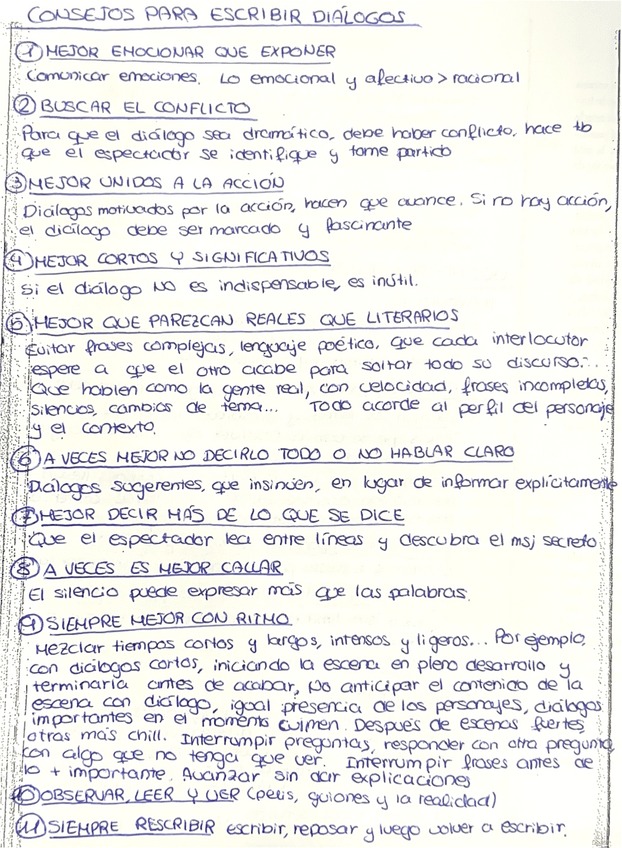 CONSEJOS PARA ESCRIBIR DIÁLOGOS
① MEJOR EMOCIONAR QUE EXPONER
Comunicar emociones. Lo emocional y afectivo > racional
② BUSCAR EL CONFLICTO
Para que el diálogo sea dramático, debe haber conflicto, hace tb
que el espectador se identifique y tome partido
③ MEJOR UNIDOS A LA ACCIÓN
Diálogos motivados por la acción, hacen que avance. Si no hay acción,
el diálogo debe ser marcado y fascinante
④ MEJOR CORTOS Y SIGNIFICATIVOS
Si el diálogo NO es indispensable, es inútil.
⑤ MEJOR QUE PAREZCAN REALES QUE LITERARIOS
Evitar frases complejas, lenguaje poético, que cada interlocutor
espere a que el otro acabe para soltar todo su discurso...
Que hablen como la gente real, con velocidad, frases incompletas,
silencios, cambios de tema... Todo acorde al perfil del personaje
y el contexto.
⑥ A VECES MEJOR NO DECIRLO TODO O NO HABLAR CLARO
Diálogos sugerentes, que insinúen, en lugar de informar explícitamente
⑦ MEJOR DECIR MÁS DE LO QUE SE DICE
Que el espectador lea entre líneas y descubra el msj secreto
⑧ A VECES ES MEJOR CALLAR
El silencio puede expresar más que las palabras.
⑨ SIEMPRE MEJOR CON RITMO
Mezclar tiempos cortos y largos, intensos y ligeros... Por ejemplo,
con diálogos cortos, iniciando la escena en pleno desarrollo y
terminarla antes de acabar, No anticipar el contenido de la
escena con diálogo, igual presencia de los personajes, diálogos
importantes en el momento culmen. Después de escenas fuertes,
otras más chill. Interrumpir preguntas, responder con otra pregunta,
con algo que no tenga que ver. Interrumpir frases antes de
lo + importante. Avanzar sin dar explicaciones
⑩ OBSERVAR, LEER Y VER (pelis, guiones y la realidad)
⑪ SIEMPRE RESCRIBIR escribir, reposar y luego volver a escribir.